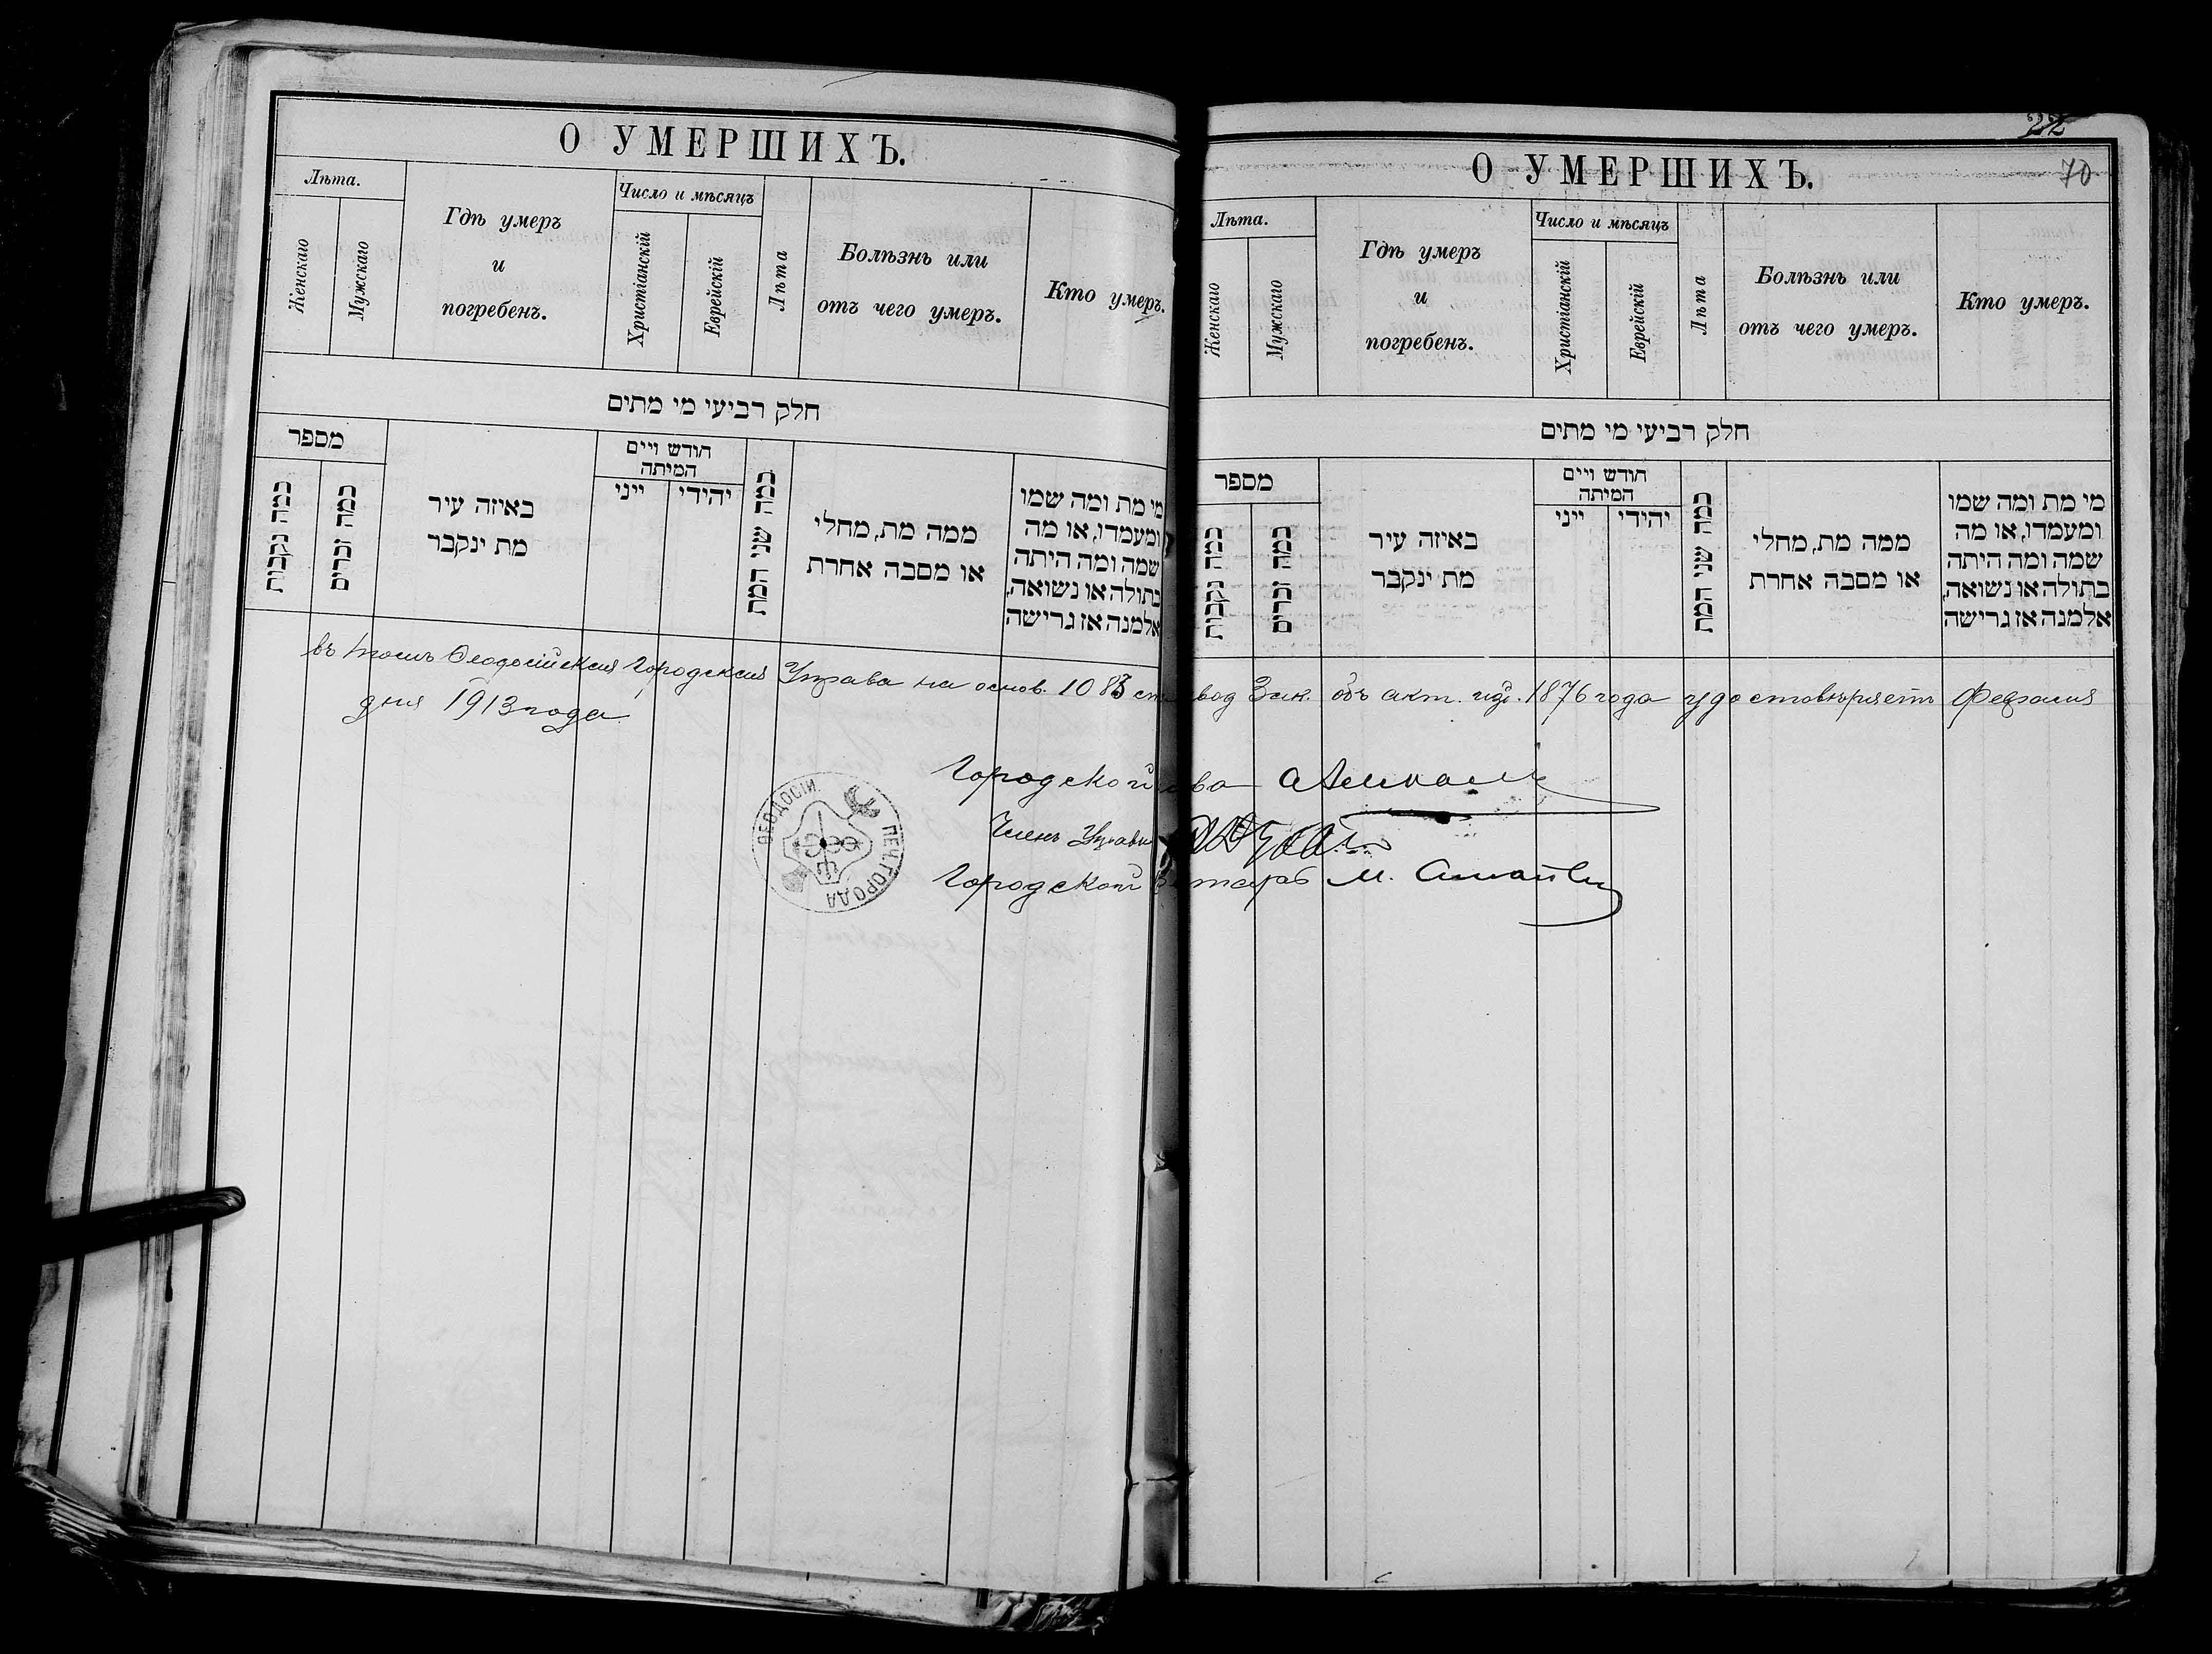 О УМЕРШИХЪ.
Лѣта.
Женскаго
Мужскаго
Гдѣ умеръ
и
погребенъ.
Число и мѣсяцъ
Христіанскій
Еврейскій
Лѣта
Болѣзнь или
отъ чего умеръ.
Кто умеръ.
חלק רביעי מי מתים
מספר
כמה נקבות
כמה זכרים
באיזה עיר
מת ינקבר
חודש ויים
המיתה
ייני
יהודי
כמה שני המת
ממה מת, מחלי
או מסבה אחרת
מי מת ומה שמו
ומעמדו, או מה
שמה ומה היתה
בתולה או נשואה,
אלמנה אז גרישה
22
70
О УМЕРШИХЪ.
Лѣта.
Женскаго
Мужскаго
Гдѣ умеръ
и
погребенъ.
Число и мѣсяцъ
Христіанскій
Еврейскій
Лѣта
Болѣзнь или
отъ чего умеръ.
Кто умеръ.
חלק רביעי מי מתים
מספר
כמה נקבות
כמה זכרים
באיזה עיר
מת ינקבר
חודש ויים
המיתה
ייני
יהידי
כמה שני המת
ממה מת, מחלי
או מסבה אחרת
מי מת ומה שמו
ומעמדו, או מה
שמה ומה היתה
בתולה או נשואה,
אלמנה אז גרישה
въ томъ Ѳеодосійская Городская Управа на основ. 1083 ст вод Зак. объ акт. изд. 1876 года удостовѣряетъ Февраля
дня 1913 года
Городской ва
Членъ Управы
Городской тарь М.
ѲЕОДОСІИ
ПЕЧ. ГОРОДА